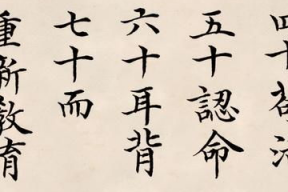 四十
五十認命
六十耳背
七十而
重新教育